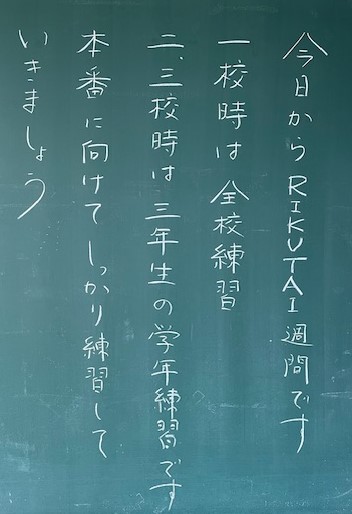 今日からRIKUTAI週間です
一校時は全校練習
二、三校時は三年生の学年練習です
本番に向けてしっかり練習して
いきましょう